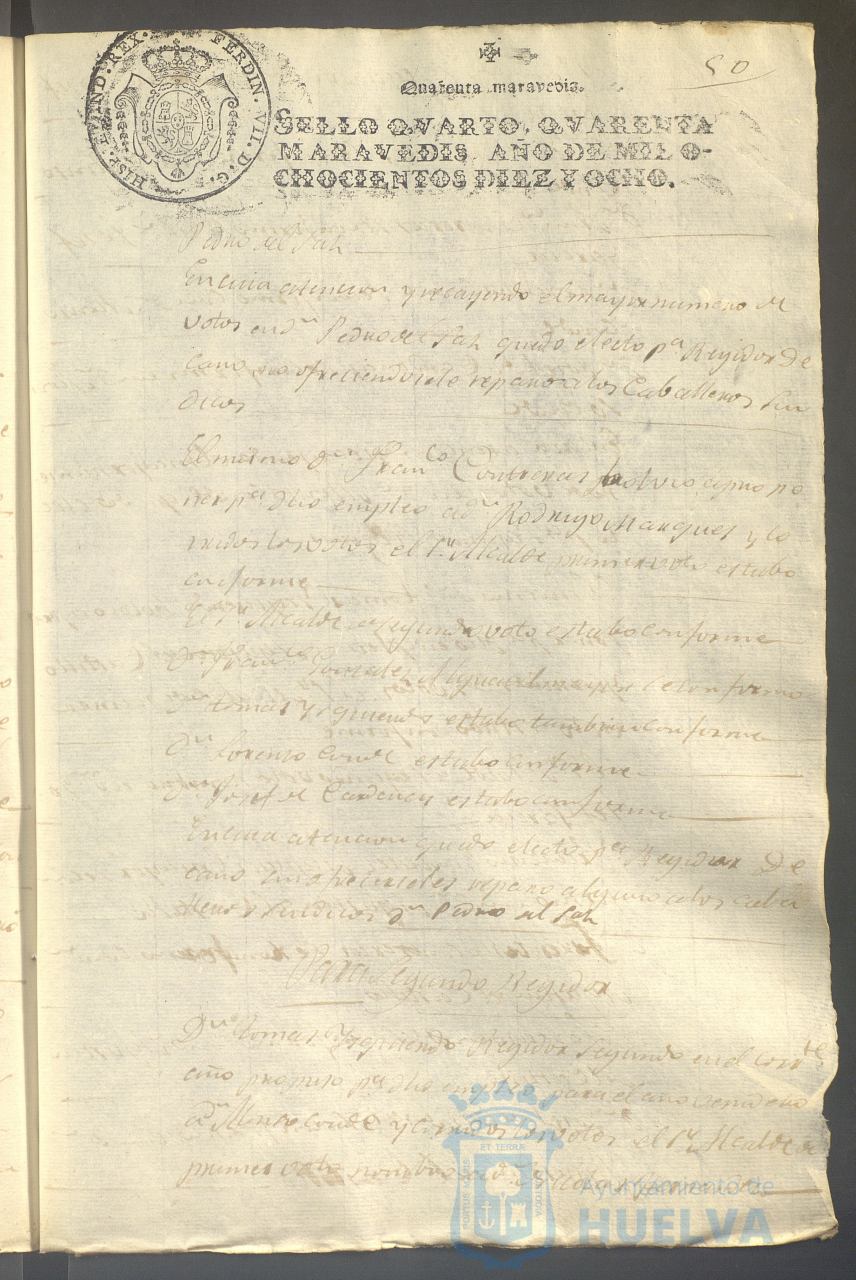 50
Quarenta maravedis.
HISP. ET IND. REX. FERDIN. VII. D. G.
SELLO QVARTO, QVARENTA
MARAVEDIS, AÑO DE MIL O-
CHOCIENTOS DIEZ Y OCHO.
Pedro del Paz
En cuia atencion y recayendo el mayor numero de
votos en dn Pedro del Paz quedo electo pa Regidor De
cano no ofreciendosele reparo a los Caballeros Sin
dicos
El mismo dn Franco Contreras volvio a propo
ner pa dho empleo a dn Rodrigo Marquez y co
rridos los votos el Sr Alcalde primer voto estubo
conforme
El Sr Alcalde de segundo voto estubo conforme
Dn Franco Gonzalez Alguacil mayor se conformo
Dn Tomas Yzquierdo estubo tambien conforme
Dn Lorenzo Conde estubo conforme
Dn Josef de Cardenas estubo conforme
En cuia atencion quedo electo pa Regidor De
cano sin ofrecerseles reparo alguno a los caba
lleros Sindicos dn Pedro del Paz
Para Segundo Regidor
Dn Tomas Yzquierdo Regidor Segundo en el corrte
año propuso pa dho empleo para el año venidero
a dn Conde y corridos los votos el Sr Alcalde de
primer voto nombro a dn
ET TERRAE
PORTUS MARIS
CUSTODIA
Ayuntamiento de
HUELVA